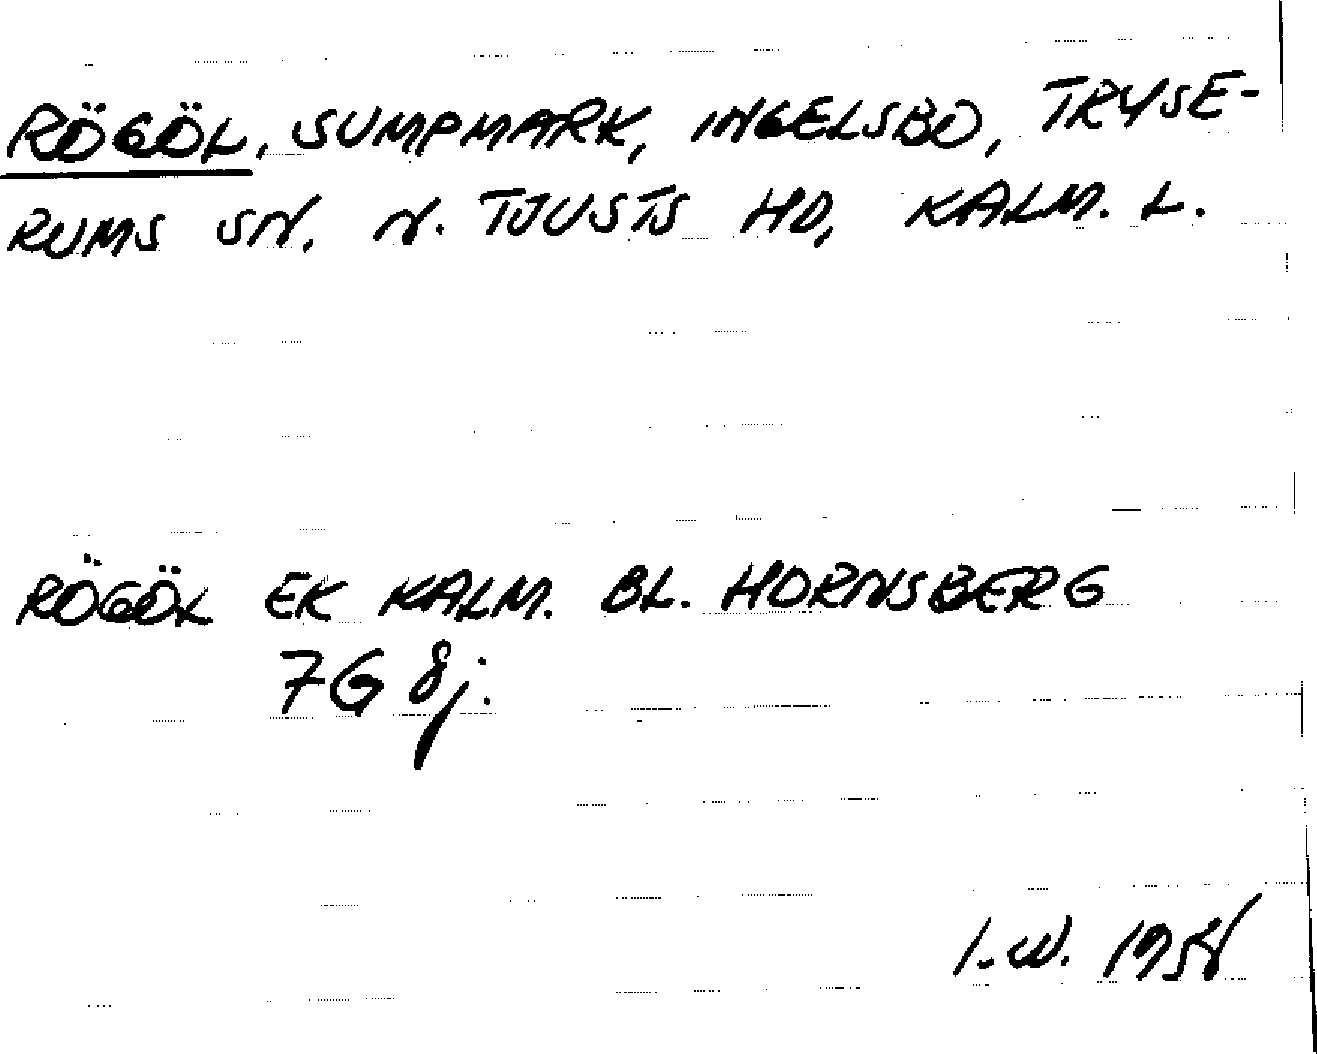 RÖGÖL, SUMPMARK, INGELSBO, TRYSE-
RUMS SN. N. TJUSTS HD, KALM. L.
RÖGÖL EK KALM. BL. HORNSBERG
7G 8j.
I.W. 1958